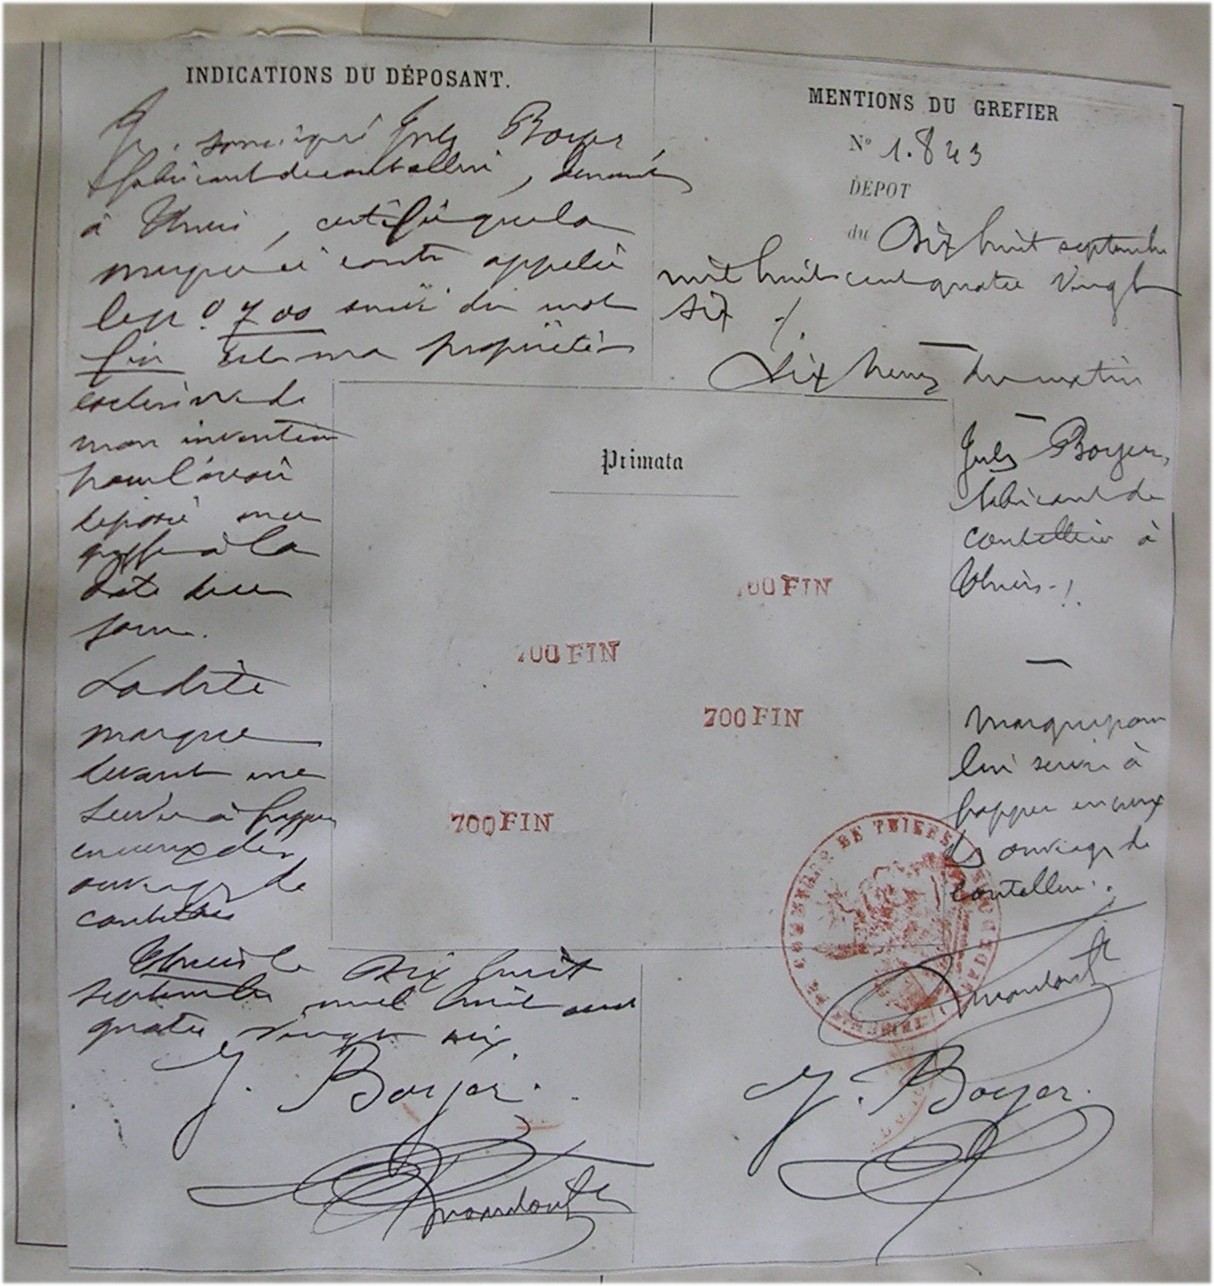 INDICATIONS DU DÉPOSANT.
Je soussigné Jules Boyer,
fabricant de coutellerie, demeurant
à Thiers, certifie que la
marque ci contre appelée
le n° 700 suivi du mot
fin est ma propriété
exclusive de
mon invention
pour l'avoir
déposé au
greffe à la
date de ce
jour.
La dite
marque
devant me
servir à frapper
en creux des
ouvrages de
coutellerie
Thiers le dix huit
septembre mil huit cent
quatre vingt six.
J. Boyer.
MENTIONS DU GREFIER
N° 1.843
DÉPOT
du Dix huit septembre
mil huit cent quatre vingt
six
Dix heures du matin
Jules Boyer,
fabricant de
coutellerie à
Thiers
Marque pour
lui servir à
frapper en creux
des ouvrages de
coutellerie.
J. Boyer.
Primata
00 FIN
700 FIN
700 FIN
700 FIN
DE COMMERCE DE THIERS